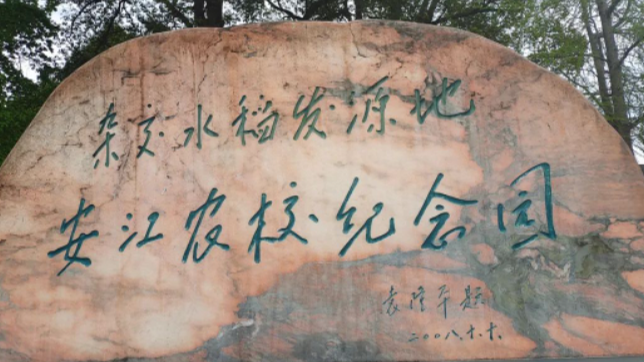 杂交水稻发源地
安江农校纪念园
袁隆平题
二00八.十.十.